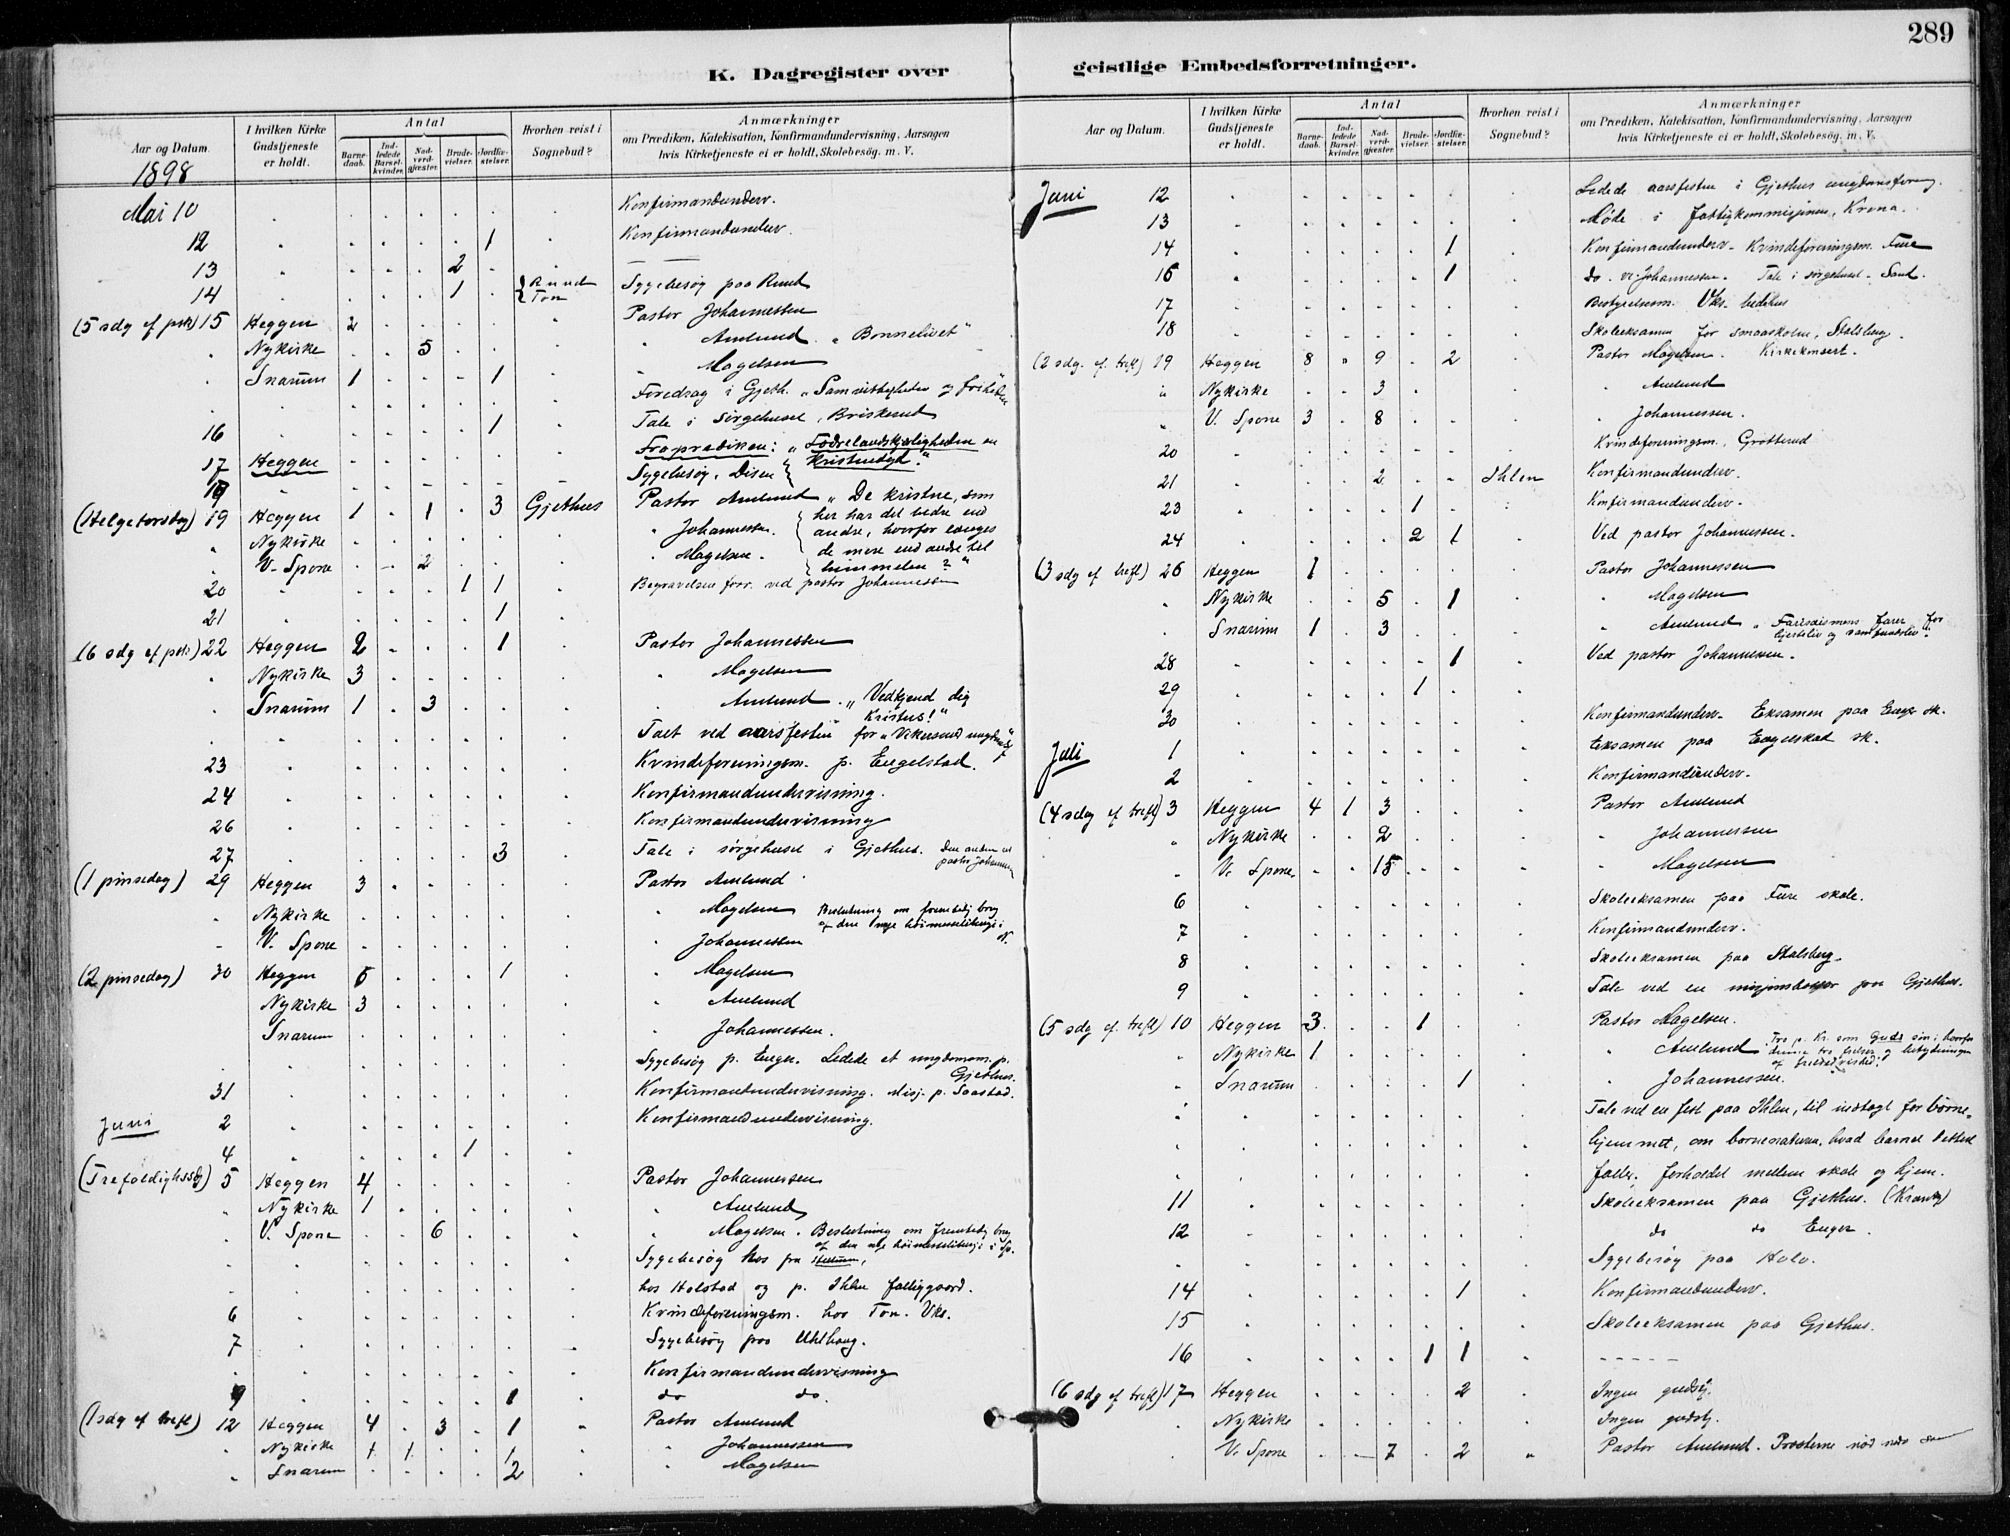 289
K. Dagregister over
geistlige Embedsforretninger.
Aar og Datum
I hvilken Kirke Gudstjeneste er holdt.
Antal
Barne-daab. Ind-ledede Barsel-kvinder. Nad-verd-gjæster. Brude-vielser. Jordfæ-stelser.
Hvorhen reist i Sognebud?
Anmærkninger
om Prædiken, Katekisation, Konfirmandundervisning, Aarsagen
hvis Kirketjeneste ei er holdt, Skolebesög. m. V.
1898
Mai 10 Konfirmandunderv.
12 1 Konfirmandunderv.
13 2
14 1 Ruud Ton Sygebesøg paa Ruud
(5 sdg ef psk) 15 Heggen 2 Pastor Johannessen
Nykirke 5 " Amlund "Bønnelivet"
Snarum 1 1 " Magelsen
Foredrag i Gjeth. "Samvittigheden og friheden
16 1 Tale i Sørgehuset, Briskerud
17 Heggen Fraprædiken: "Fædrelandskjærligheden en kristendyd."
18 Sygebesøg, Disen
(Helgetorsdag) 19 Heggen 1 1 3 Gjethus Pastor Amlund "De kristne, som
Nykirke " Johannessen her har det bedre end andre, hvorfor længes
V. Spone 2 " Magelsen. de mere end andre til himmelen?"
20 1 1 Begravelsen forr. ved pastor Johannessen
21 1
(6 sdg ef psk) 22 Heggen 2 1 Pastor Johannessen
Nykirke 3 " Magelsen
Snarum 1 3 " Amlund. "Vedkjend dig Kristus!"
Talt ved aarsfesten for "Vikersund
23 Kvindeforeningsm. p. Engelstad.
24 Konfirmandundervisning.
26 Konfirmandundervisning
27 3 Tale i sørgehuset i Gjethus. Den anden ved pastor Johannessen
(1 pinsedag) 29 Heggen 3 Pastor Amlund
Nykirke " Magelsen Beslutning om fremtidig brug af den nye høimesseliturgi i N.
V. Spone " Johannessen
(2 pinsedag) 30 Heggen 5 1 " Magelsen
Nykirke 3 " Amlund
Snarum " Johannessen.
Sygebesøg p. Enger. Ledede et ungdomsm. p. Gjethus.
31 Konfirmandundervisning. Misj. p. Saastad.
Juni 2 Konfirmandundervisning.
4 1
(Trefoldighssdg) 5 Heggen 4 Pastor Johannessen
Nykirke 1 " Amlund
V. Spone 6 " Magelsen. Beslutning om fremtidig brug af den nye høimesseliturgi i Sp.
Sygebesøg hos fru
hos Holstad og p. Ihlen fattiggaard.
6 Kvindeforeningsm. hos Ton. Vks.
7 Sygebesøg paa Uhlhaug.
Konfirmandundervisning
9 1 do do.
(1 sdg ef trefl) 12 Heggen 4 3 1 Pastor Amlund
Nykirke 1 1 1 " Johannessen
Snarum 2 " Magelsen
Aar og Datum.
I hvilken Kirke Gudstjeneste er holdt.
Antal
Barne-daab. Ind-ledede Barsel-kvinder. Nad-verd-gjæster. Brude-vielser. Jordfæ-stelser.
Hvorhen reist i Sognebud?
Anmærkninger
om Prædiken, Katekisation, Konfirmandundervisning, Aarsagen
hvis Kirketjeneste ei er holdt, Skolebesög. m. V.
Juni 12 Ledede aarsfesten i Gjethus ungdomsforeng.
13 Møde i fattigkommisjonen, Krona.
14 1 Konfirmandunderv. Kvindeforeningsm. Fure
16 1 do. ve. Johannessen. Tale i sørgehuset. Sand.
17 Bestyrelsesm. Vks. bedehus
18 Skoleeksamen for smaaskolen, Stalsberg.
(2 sdg. ef. trefl) 19 Heggen 8 9 2 Pastor Magelsen. Kirkekonsert.
Nykirke 3 " Amlund
V. Spone 3 8 " Johannessen.
20 Kvindeforeningsm., Grotterud
21 2 Ihlen Konfirmandunderv.
23 1 Konfirmandunderv.
24 2 1 Ved pastor Johannessen.
(3 sdg ef trefl) 26 Heggen 1 Pastor Johannessen
Nykirke 5 1 " Magelsen
Snarum 1 3 " Amlund "Farisæismens farer for hjerteliv og samfundsliv".
28 1 Ved pastor Johannessen.
29 1
30 Konfirmandunderv. Eksamen paa Enger sk.
Juli 1 Eksamen paa Engelstad sk.
2 Konfirmandunderv.
(4 sdg ef trefl) 3 Heggen 4 1 3 Pastor Amlund
Nykirke 2 " Johannessen
V. Spone. 15 " Magelsen
6 Skoleeksamen paa Fure skole.
7 Konfirmandunderv.
8 Skoleeksamen paa Stalsberg.
9 Tale ved en misjonsbasar paa Gjethus.
(5 sdg ef. trefl) 10 Heggen 3 1 Pastor Magelsen.
Nykirke 1 " Amlund Tro p. Kr. som Guds søn: hvorfor denne tro frelser, og betydningen af
Snarum 1 " Johannessen.
Tale ved en fest paa Ihlen, til indtægt for børne-
hjemmet, om barnenaturen, hvad barnet
falder, forholdet mellem skole og hjem.
11 Skoleeksamen paa Gjethus. (Krantz)
12 do do Enger.
Sygebesøg paa Hole.
14 1 Konfirmandunderv.
15 Skoleeksamen paa Gjethus.
16 1 1
(6 sdg ef trefl) 17 Heggen 2 Ingen gudstj.
Nykirke Ingen gudstj.
V. Spone 7 2 Pastor Amlund.